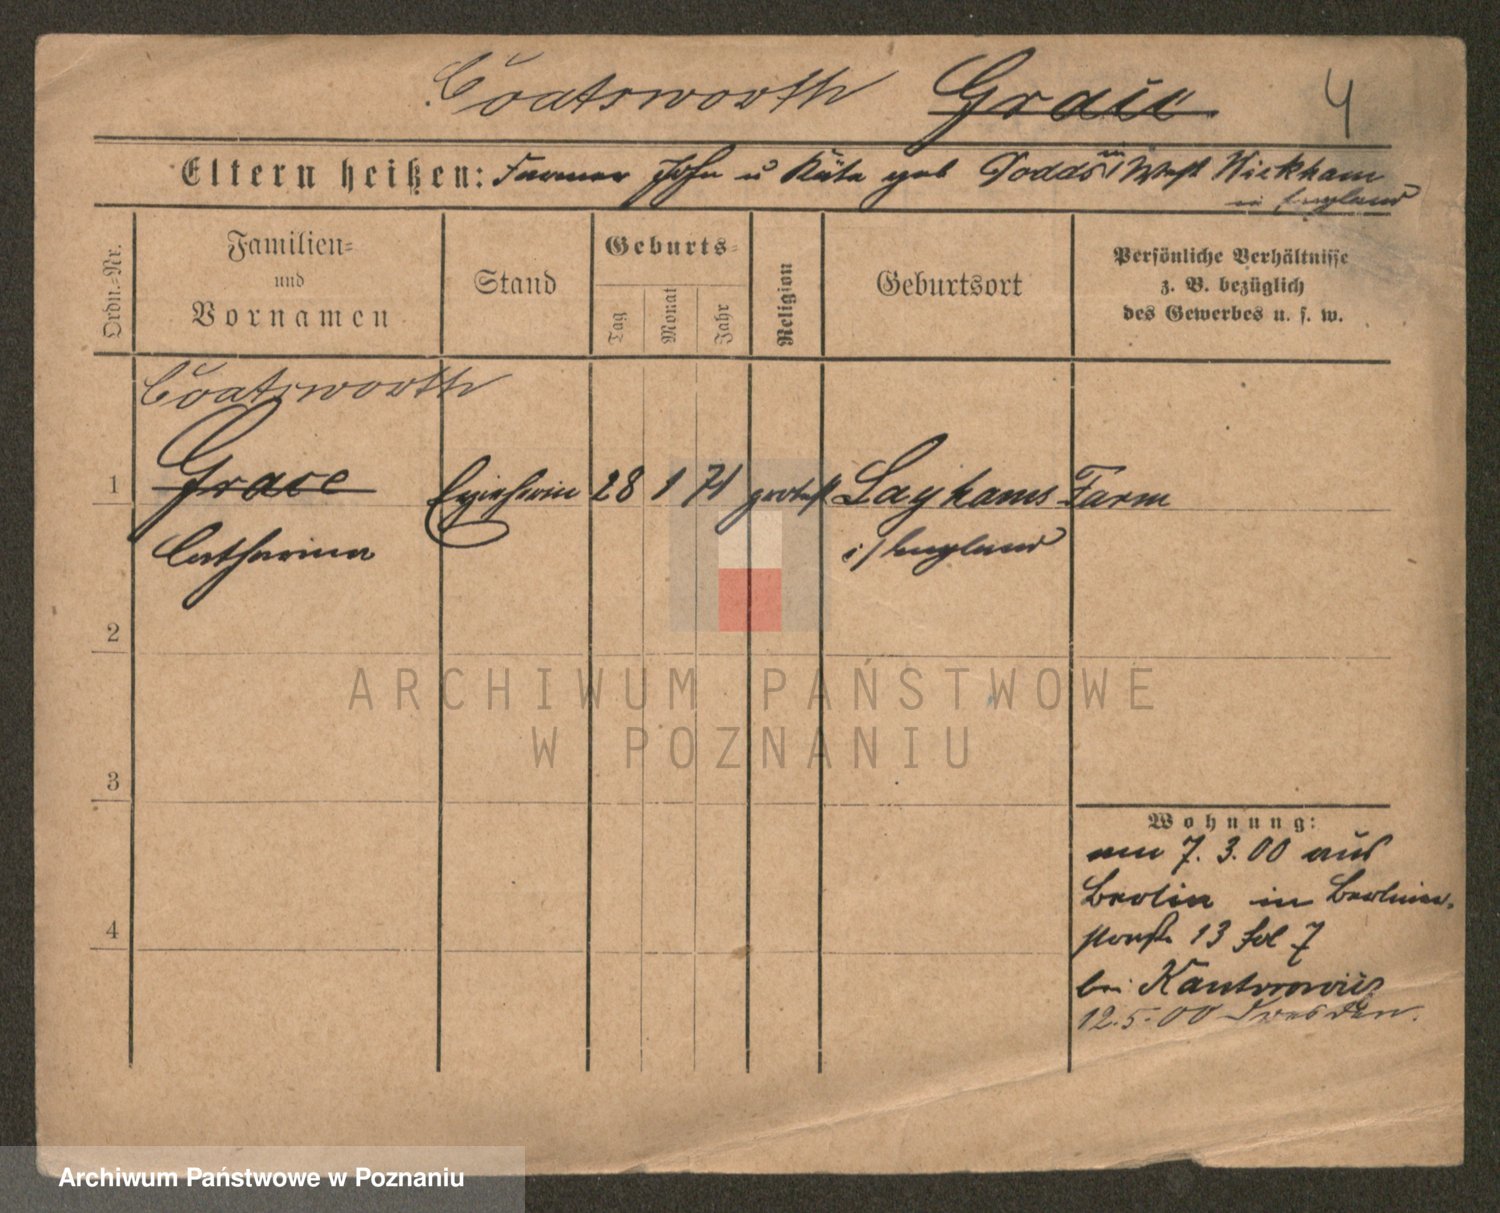 Coatsworth Graic 4
Eltern heißen: Farmer John u Käte geb Dodds in West Wickham
in England
Ordn.-Nr.
Familien-
und
Vornamen
Stand
Geburts-
Tag
Monat
Jahr
Religion
Geburtsort
Persönliche Verhältnisse
z. B. bezüglich
des Gewerbes u. s. w.
Coatsworth
1 Grace Erzieherin 28 1 71 protest Layhams Farm
Catharina i/ England
2
3
4
ARCHIWUM PAŃSTWOWE
W POZNANIU
Wohnung:
am 7. 3. 00 aus
Berlin in Berliner-
straße 13 fol 7
bei Kantorowicz
12. 5. 00 Dresden.
Archiwum Państwowe w Poznaniu